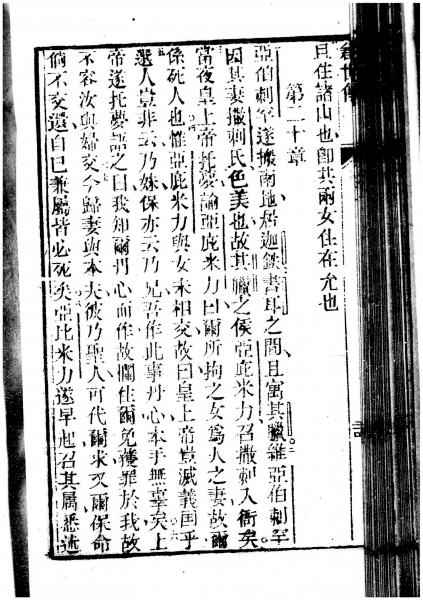 創世傳
且住諸山也卽其兩女住在穴也
第二十章
亞伯剌罕遂搬南地居迦鉄書耳之間且寓其臘維亞伯剌罕
因其妻撒剌氏色美也故其臘之侯亞庇米力召撒剌入衙矣
當夜皇上帝托夢諭亞庇米力曰爾所拘之女爲人之妻故爾
係死人也惟亞庇米力與女未相交故曰皇上帝豈滅義国乎
選人豈非云乃妹係亦云乃兄吾作此事丹心本手無辜矣上
帝遂托夢語之曰我知爾丹心而作故攔住爾免獲罪於我故
不容汝與婦交今歸妻與本夫彼乃聖人可代爾求又爾保命
倘不交還自已兼屬皆必死矣亞比米力遂早起召其屬悉述